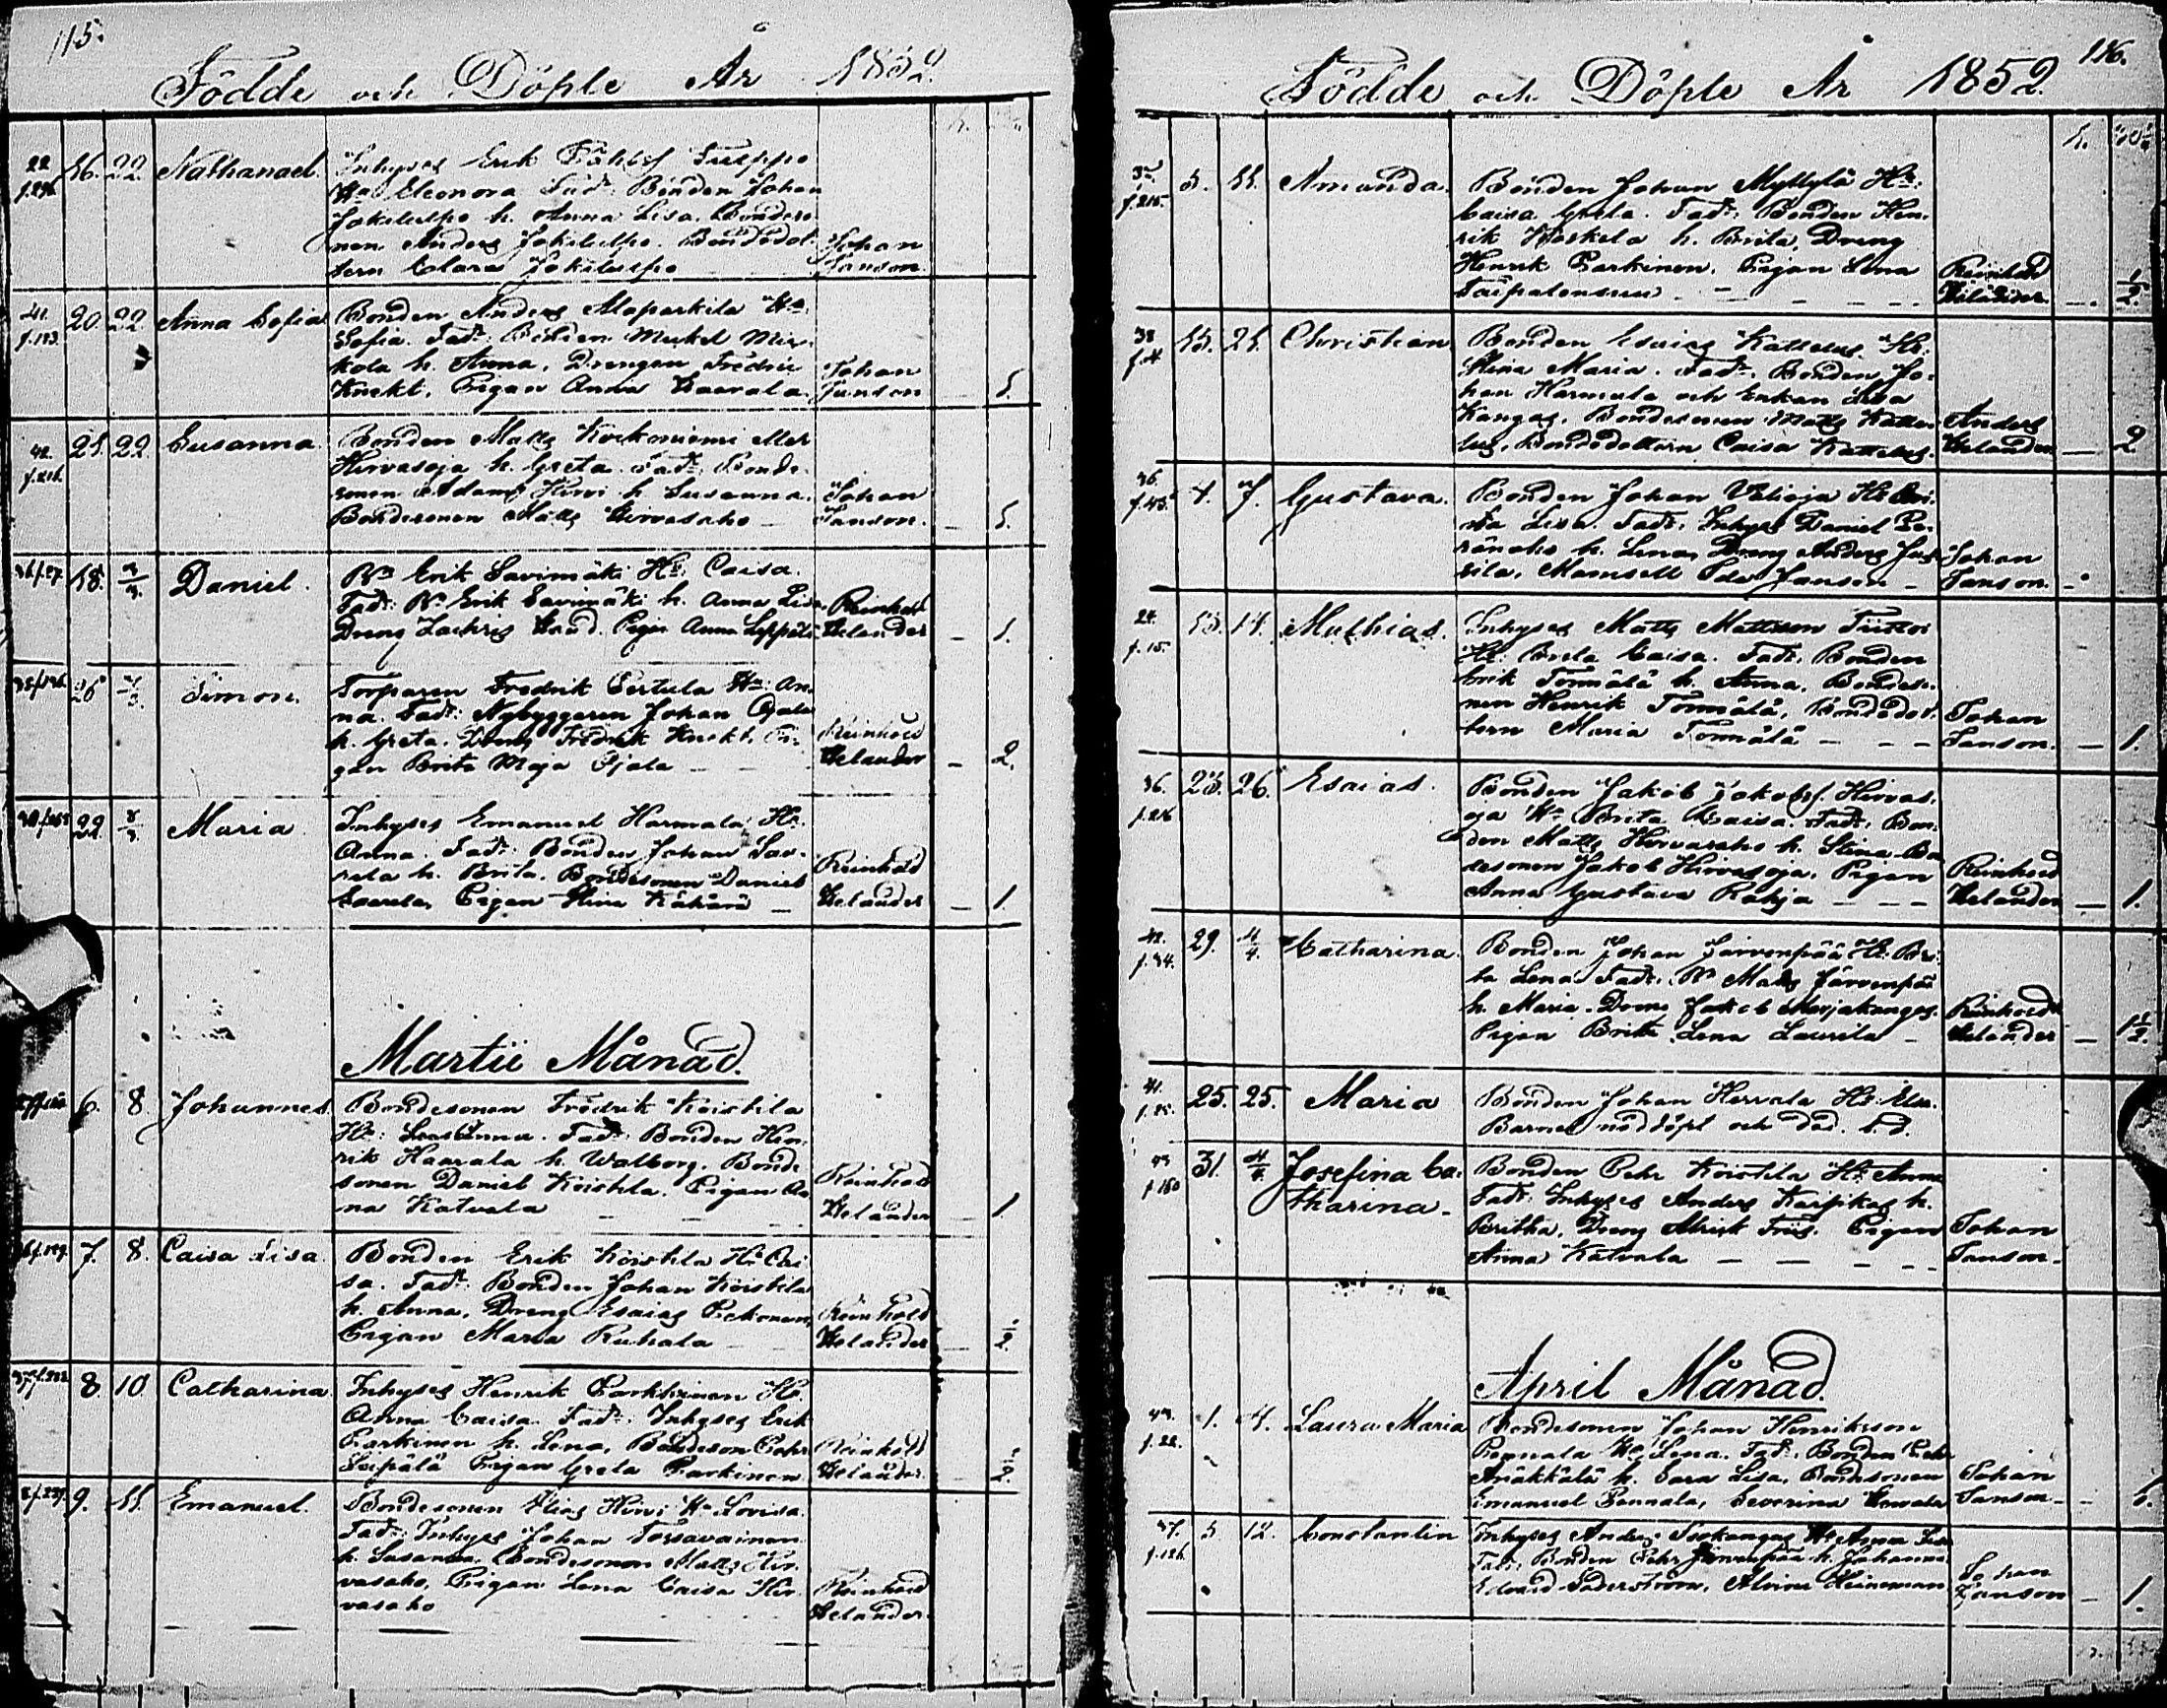 115.
Födde och Döpte År 1852.
22 16. 22. Nathanael. Inhyses Erik
Hu Eleonora Fadr: Bonden Johan
Jokitulpo h. Anna Lisa. Bondeso-
nen Anders Jokitulpo. Bondedot-
tern Clara Jokitulpo Johan Janson.
41. f.193. 20. 22. Anna Sofia Bonden Anders Alaparkila Hu
Sofia. Fadr: Bonden Mickel
kola h. Anna, Drengen Fredric
Knekt, Pigan Anna Haarala. Johan Janson 1.
42. f.216. 21. 22 Susanna. Bonden Matts Korkoniemi eller
Hirvasoja h. Greta. Fadr: Bonde-
sonen Adam Hirvi h. Susanna.
Bondesonen Matts Hirvasaho Johan Janson. 1.
18. Daniel. Erik Savimäki Hu: Caisa.
Fadr: Erik Savimäki h. Anna Lisa.
Dreng Zachris Pigan Anna Leppälä Reinhold Helander 1.
26 Simon. Torparen Fredrik Pertula Hu: An-
na. Fadr: Nybyggaren Johan Ojala
h. Greta. Dreng Fredrik Knekt, Pi-
gan Brita Maja Ojala Reinhold Helander 2.
22. Maria Inhyses Emanuel Harmala Hu.
Anna Fadr: Bonden Johan Saa-
rela h. Brita. Bondesonen Daniel
Saarela, Pigan Stina Kähärä Reinhold Helander 1.
Martii Månad.
6. 8 Johannes. Bondesonen Fredrik Koistila
Hu: Fadr: Bonden Hen-
rik Haarala h. Walborg. Bonde-
sonen Daniel Koistila. Pigan An-
na Katvala Reinhold Helander 1.
7. 8. Caisa Lisa. Bonden Erik Koistila Hu Cai-
sa. Fadr: Bonden Johan Koistila
h. Anna, Dreng Esaias Pekonen,
Pigan Maria Ruhala Reinhold Helander ½
8. 10 Catharina Inhyses Henrik Parkkinen Hu
Anna Caisa. Fadr: Inhyses Erik
Parkinen h. Lena, Bondeson Pehr
Seipälä Pigan Greta Parkinen Reinhold Helander. ½
9. 11. Emanuel. Bondesonen Elias Hirvi Hu Lovisa.
Fadr: Inhyses Johan Torsavainen
h. Susanna. Bondesonen Matts Hir-
vasaho, Pigan Lena Caisa Hir-
vasaho Reinhold Helander.
116.
Födde och Döpte År 1852.
f.215. 5. 11. Amanda. Bonden Johan Myllylä Hu:
Caisa Greta. Fadr: Bonden Hen-
rik Koskela h. Brita, Dreng
Henrik Parkinen, Pigan Lena
Taipalensuu Reinhold Helander. ½
38 f.4 15. 21. Christian Bonden Esaias Kattelus Hu:
Stina Maria. Fadr: Bonden Jo-
han Harmala och Enkan Lisa
Kangas, Bondesonen Matts Katte-
lus, Bondedottern Caisa Kattelus. Anders Helander 2
36. 4. 7. Gustava. Bonden Johan Välioja Hu Bri-
ta Lisa. Fadr: Inhyses Daniel Pe-
ränaho h. Lena, Dreng Anders Jus-
sila, Mamsell Ida Janson Johan Janson.
24. f.15. 13. 14. Mathias. Inhyses Matts Mattsson
Hu: Greta Caisa. Fadr: Bonden
Erik Tornälä h. Anna, Bondeso-
nen Henrik Tornälä, Bondedot-
tern Maria Tornälä Johan Janson. 1.
36. f.216 23. 26. Esaias. Bonden Jakob Jakobss. Hirvas-
oja Hu Brita Caisa. Fadr: Bon-
den Matts Hirvasaho h. Stina. Bon-
desonen Jakob Hirvasoja, Pigan
Anna Gustava Rahja Reinhold Helander 1.
42. f.34. 29. 4/4. Catharina. Bonden Johan Järvenpää Hu: Bri-
ta Lena. Fadr: Matts Järvenpää
h. Maria. Dreng Jakob Marjakangas.
Pigan Brita Lena Laurila Reinhold Helander 1½
41. 25. 25. Maria Bonden Johan Hervala Hu: Elsa.
Barnet nöddöpt och död. s.d.
43 f.150 31. 4/4. Josefina Ca-
tharina. Bonden Pehr Koistila Hu Anna
Fadr: Inhyses Anders Karpikas h.
Beritha, Dreng Alrik Friis. Pigan
Anna Katvala Johan Janson.
April Månad.
43. f.22. 1. 4. Laura Maria Bondesonen Johan Henriksson
Pennala Hu Lena. Fadr: Bonden Pehr
Änäkkälä h. Sara Lisa, Bondesonen
Emanuel Pennala, Severina Johan Janson 1.
37. f.126. 5. 12. Constantin Inhyses Anders Isokangas Hu Anna Lisa
Fadr: Bonden Pehr Järvenpää h. Johanna.
Edvard Söderström, Alvina Heineman Johan Janson 1.